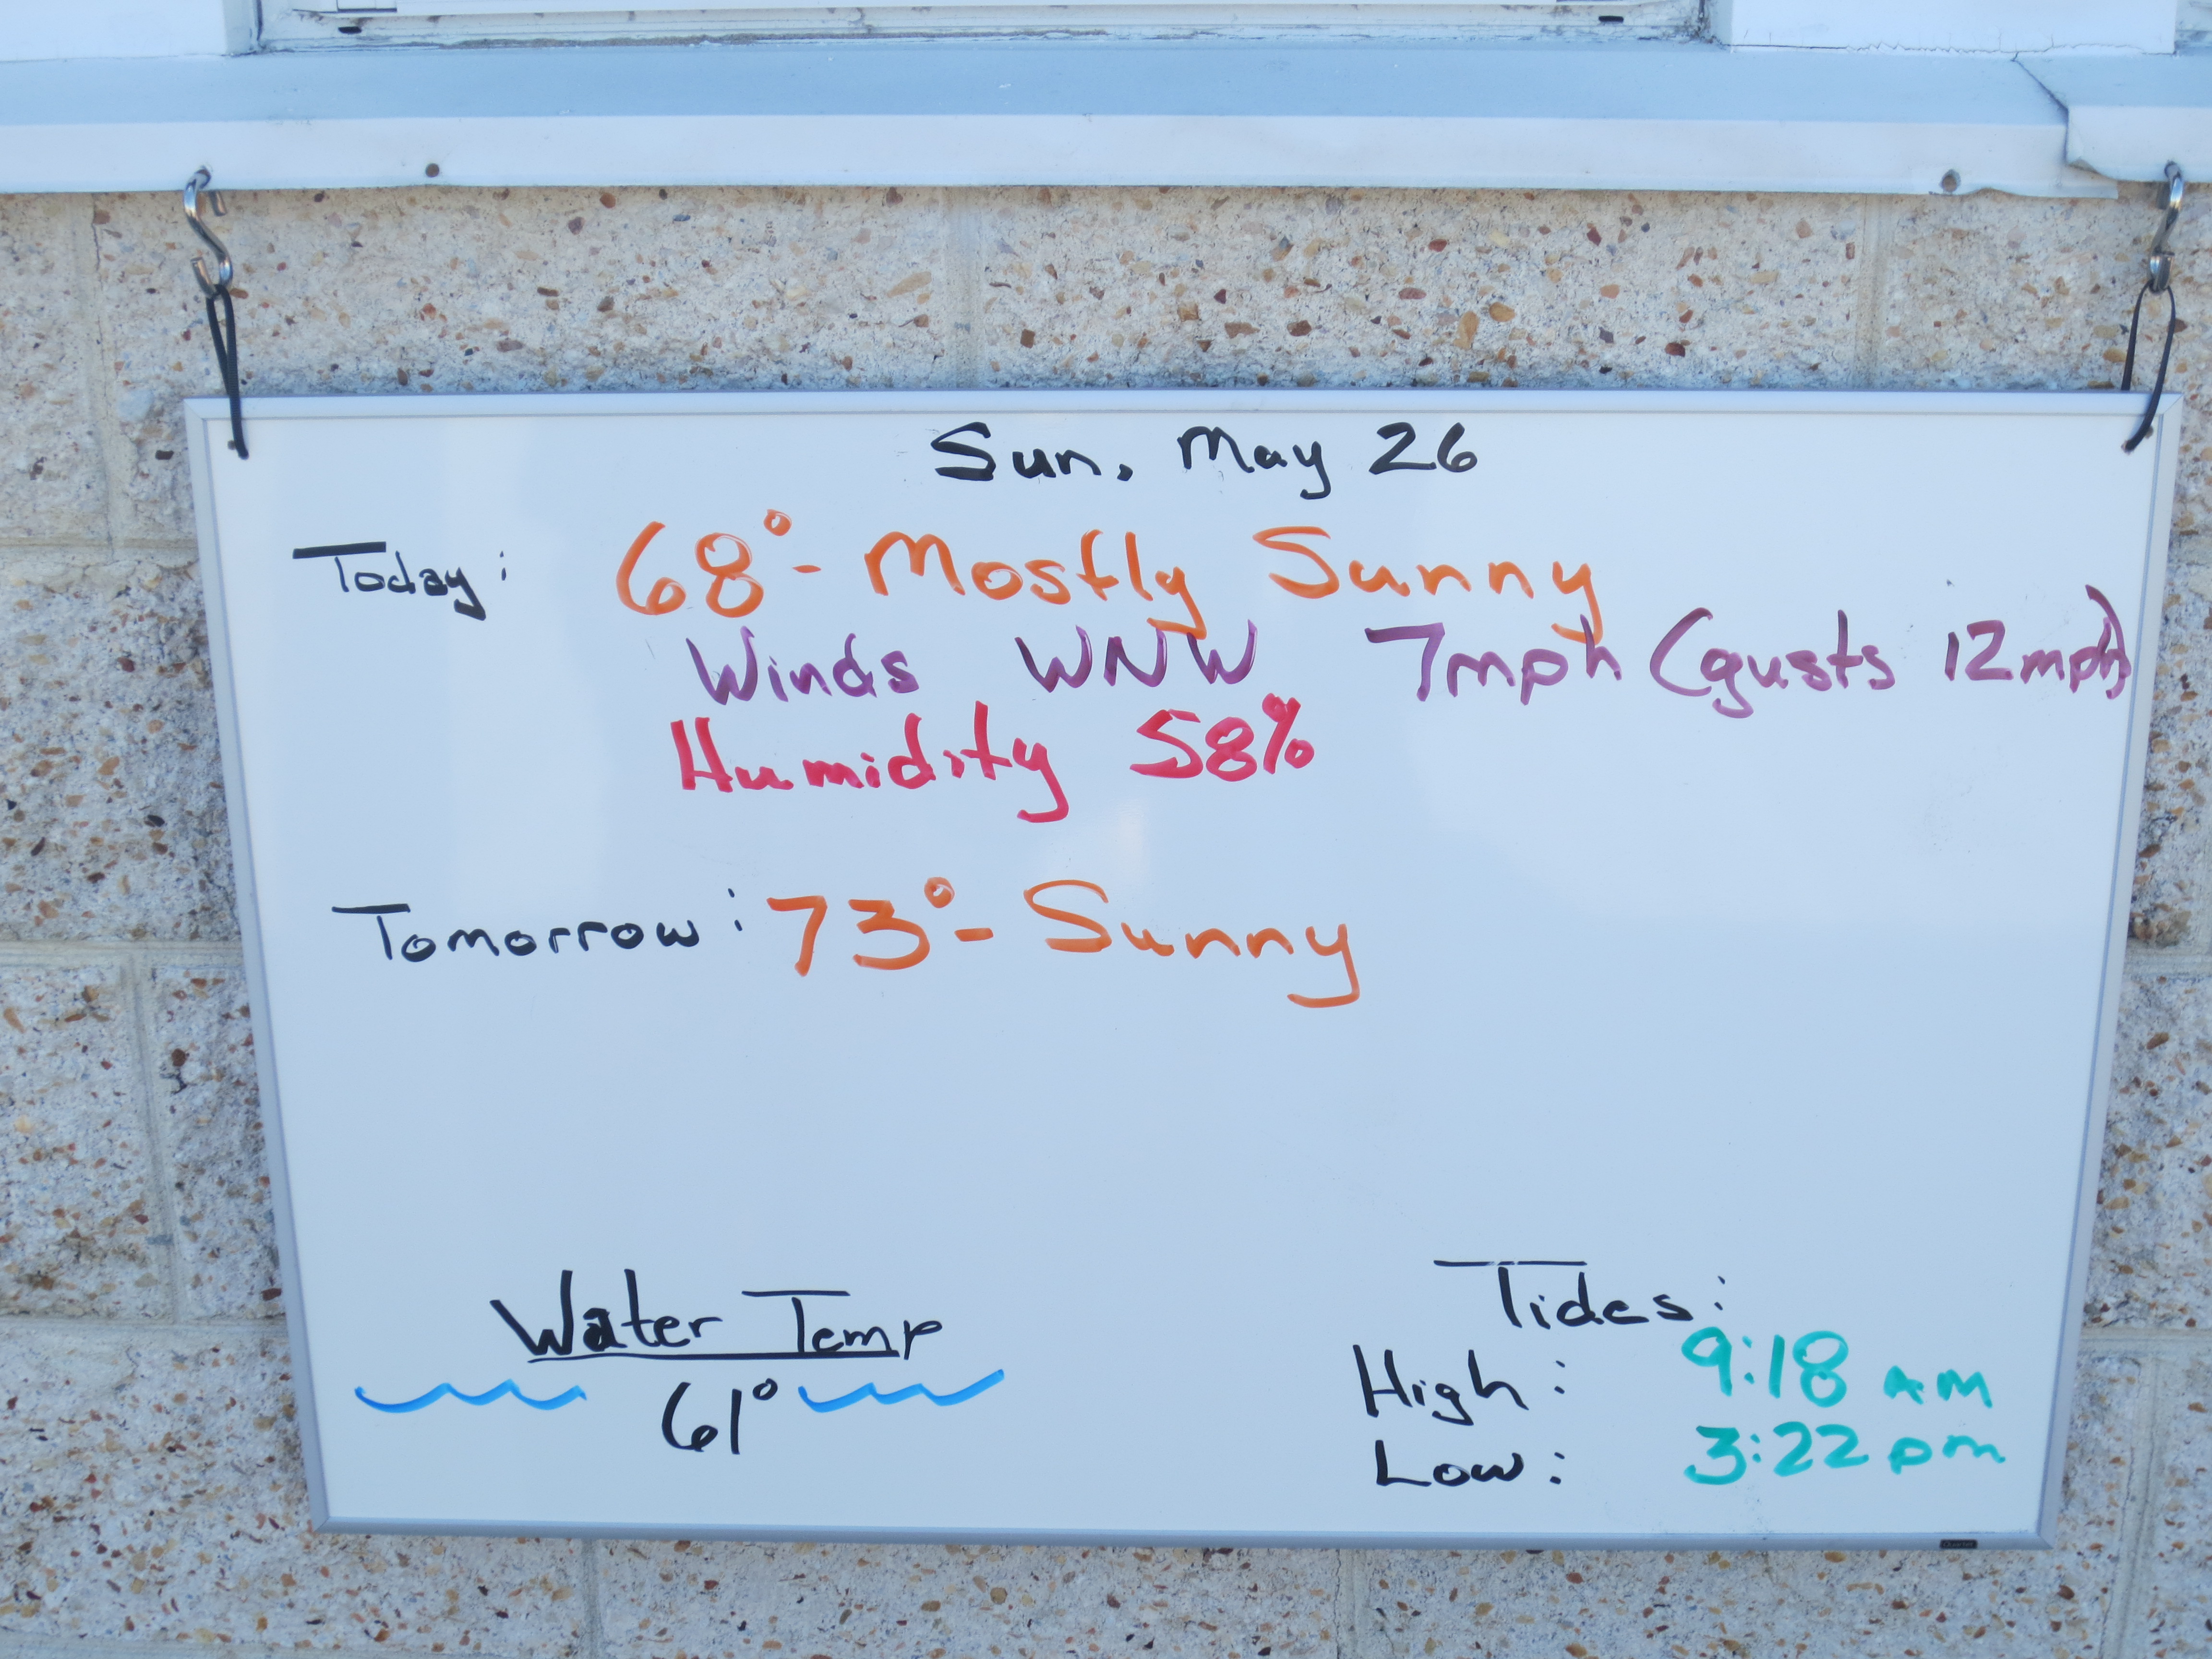 Sun. May 26
Today: 68° - Mostly Sunny
Winds WNW 7mph (gusts 12mph)
Humidity 58%
Tomorrow: 73° - Sunny
Water Temp
61°
Tides:
High: 9:18 am
Low: 3:22 pm